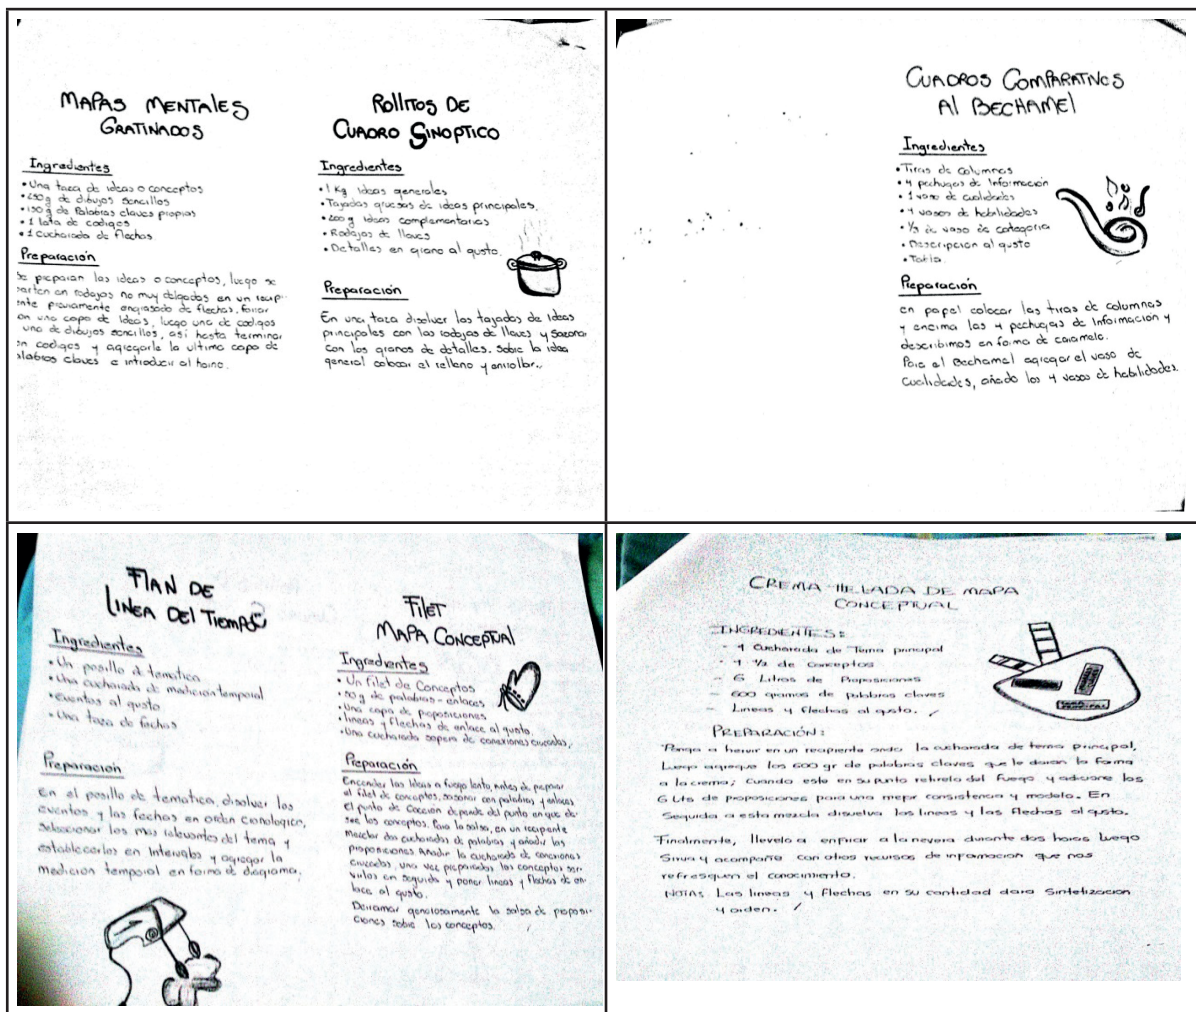 MAPAS MENTALES
GRATINADOS
Ingredientes
• Una taza de ideas o conceptos
• 250g de dibujos sencillos
• 150 g de Palabras claves propias
• 1 lata de codigos
• 1 cucharada de flechas.
Preparación
Se preparan las ideas o conceptos, luego se
parten en rodajas no muy delgadas en un recip-
iente previamente engrasado de flechas, forrar
con una capa de ideas, luego una de codigos
una de dibujos sencillos, así hasta terminar
en codigos y agregarle la ultima capa de
palabras claves e introducir al horno.
Rollitos DE
CUADRO SINOPTICO
Ingredientes
• 1 Kg ideas generales
• Tajadas gruesas de ideas principales.
• 200g ideas complementarias
• Rodajas de llaves
• Detalles en grano al gusto.
Preparación
En una taza disolver las tajadas de Ideas
principales con las rodajas de llaves y sazonar
con los granos de detalles. Sobre la idea
general colocar el relleno y enrollar.
CUADROS COMPARATIVOS
Al BECHAMEL
Ingredientes
• Tiras de columnas
• 4 pechugas de Información
• 1 vaso de cualidades
• 4 vasos de habilidades
• 1/2 de vaso de categoria
• Descripcion al gusto
• Tabla.
Preparación
en papel colocar las tiras de columnas
y encima las 4 pechugas de Información y
describimos en forma de caramelo.
Para el Bechamel agregar el vaso de
Cualidades, añado los 4 vasos de habilidades.
FlAN DE
LINEA DEl TIEMPO
Ingredientes
• Un posillo de tematica
• Una cucharada de medición temporal
• Eventos al gusto
• Una taza de fechas
Preparación
En el posillo de tematica, disolver los
eventos y las fechas en orden cronologico,
seleccionar los mas relevantes del tema y
establecerlos en Intervalos y agregar la
medicion temporal en forma de diagrama.
FilET
MAPA CONCEPTUAL
Ingredientes
• Un filet de Conceptos
• 50 g de palabras-enlaces
• Una copa de proposiciones
• lineas y flechas de enlace al gusto.
• Una cucharada sopera de conexiones cruzadas.
Preparación
Encender las Ideas a fuego lento, antes de preparar
el filet de conceptos, sasonar con palabras y enlaces
el punto de cocción depende del punto en que de-
see los conceptos. Para la salsa, en un recipiente
mezclar dos cucharadas de palabras y añadir las
proposiciones Añadir la cucharada de conexiones
cruzadas, una vez preparados los conceptos ser-
virlos en seguida y poner lineas y flechas de en-
lace al gusto.
Derramar generosamente la salsa de proposi-
ciones sobre los conceptos.
CREMA HELADA DE MAPA
CONCEPTUAL
INGREDIENTES:
- 1 Cucharada de Tema principal
- 1 1/2 de conceptos
- 6 Litros de Proposiciones
- 600 gramos de palabras claves
- Lineas y flechas al gusto.
PREPARACIÓN:
Ponga a hervir en un recipiente ondo la cucharada de tema principal,
Luego agregue los 600 gr de palabras claves que le daran la forma
a la crema; Cuando este en su punto retirelo del fuego y adicione los
6 Lts de proposiciones para una mejor consistencia y modelo. En
Seguida a esta mezcla disuelva las lineas y las flechas al gusto.
Finalmente, llevelo a enfriar a la nevera durante dos horas Luego
Sirva y acompañe con otros recursos de informacion que nos
refresquen el conocimiento.
NOTA: Las lineas y flechas en su cantidad dara Sintetizacion
y orden.